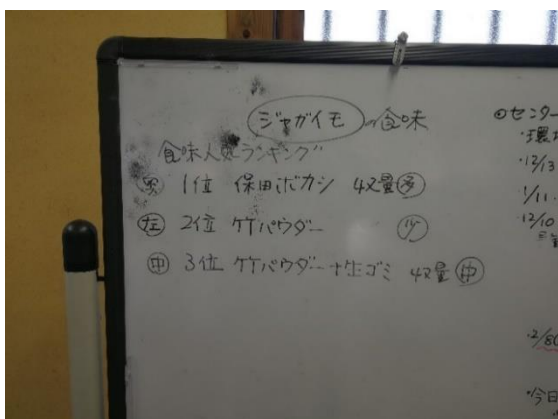 ジャガイモの食味
食味人気ランキング
奥 1位 保田ボカシ 収量 多
左 2位 竹パウダー 少
中 3位 竹パウダー+生ゴミ 収量 中
◎センター
・環境
・12/13
1/11.
・12/10
・2/80
・今日